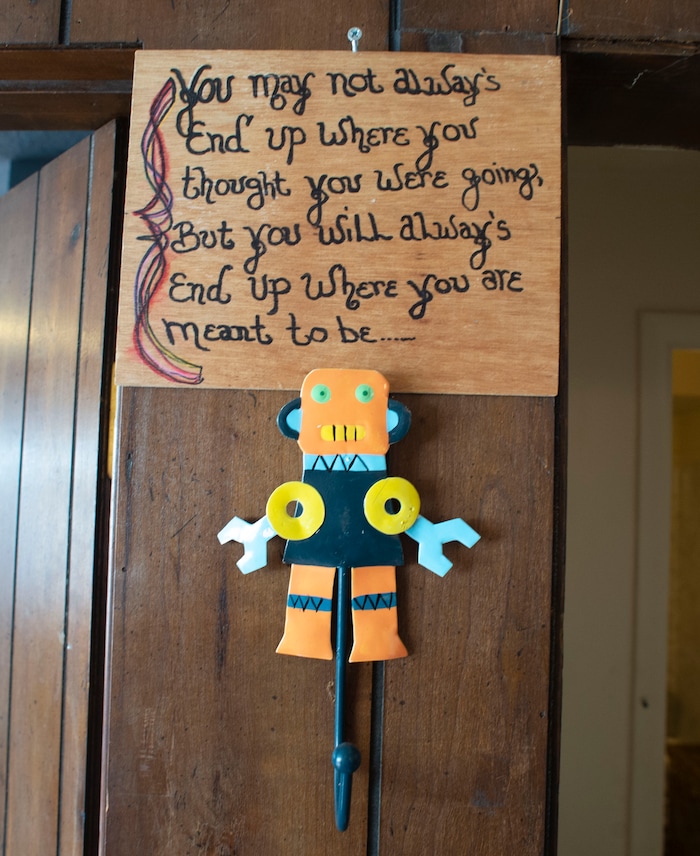 You may not always's
End up where you
thought you were going,
But you will always's
End up where you are
meant to be.....